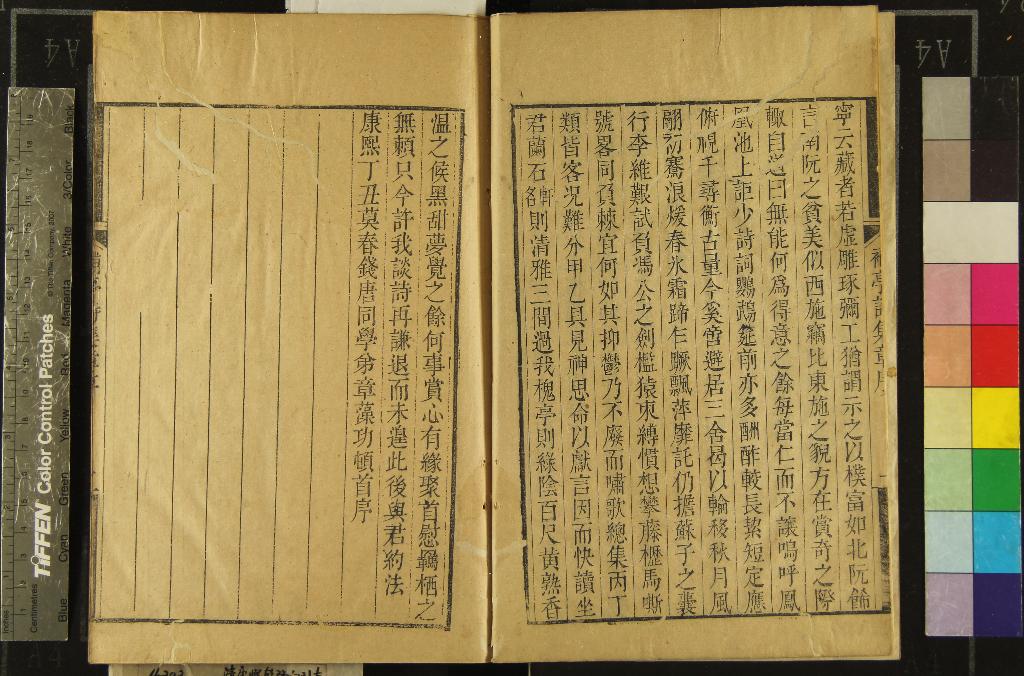 寧云藏者若虛雕琢彌工猶謂示之以樸富如北阮餙
言南阮之貧美似西施竊比東施之貌方在賞奇之際
輒自
曰無能何為得意之餘每當仁而不讓嗚呼鳳
凰池上詎少詩詞鸚鵡筵前亦多酬酢較長絜短定應
俯視千尋衡古量今奚啻避居三舍曷以輪移秋月風
翮初騫浪煖春氷霜蹄乍蹶飄萍靡託仍擔蘇子之囊
行李維艱試負馮公之劍檻猿束縛慣想攀藤櫪馬嘶
號畧同負棘宜何如其抑鬱乃不廢而嘯歌總集丙丁
類皆客況難分甲乙具見神思命以獻言因而快讀坐
君蘭石軒則清雅三間過我槐亭則綠陰百尺黃熟香
溫之候黑甜夢覺之餘何事賞心有緣聚首慰羈栖之
無賴只今許我談詩再謙退而未遑此後與君約法
康熙丁丑莫春錢唐同學弟章藻功頓首序
亭詩集章序
TIFFEN Color Control Patches
© The Tiffen Company, 2007
Blue
Cyan
Green
Yellow
Red
Magenta
White
3/Color
Black
Inches
Centimetres
A4
A4